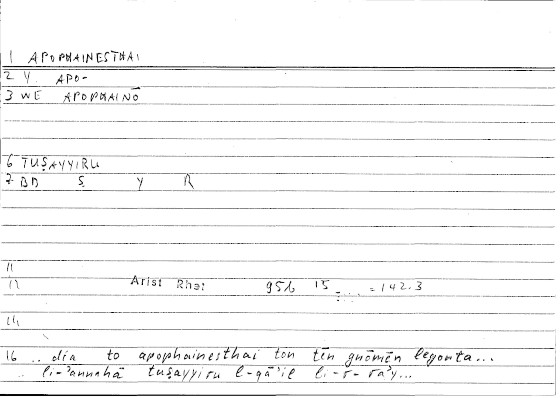 1 APOPHAINESTHAI
2 Y. APO-
3 WE APOPHAINŌ
6 TUṢAYYIRU
7 BD Ṣ Y R
11
12 Arist Rhet 95b 15 = 142.3
14
16 .. dia to apophainesthai ton tēn gnōmēn legonta...
.. li-ʾannahā tuṣayyiru l-qāʾil li-r-raʾy...